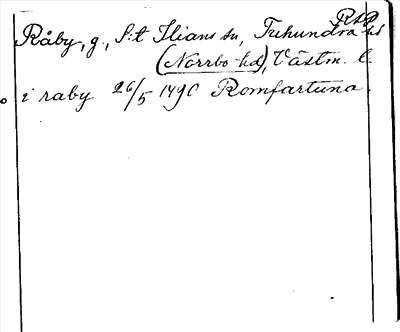 RAP
Råby, g., S:t Ilians sn, Tuhundra hd
(Norrbo hd), Västm. l.
i raby 26/5 1490 Romfartuna